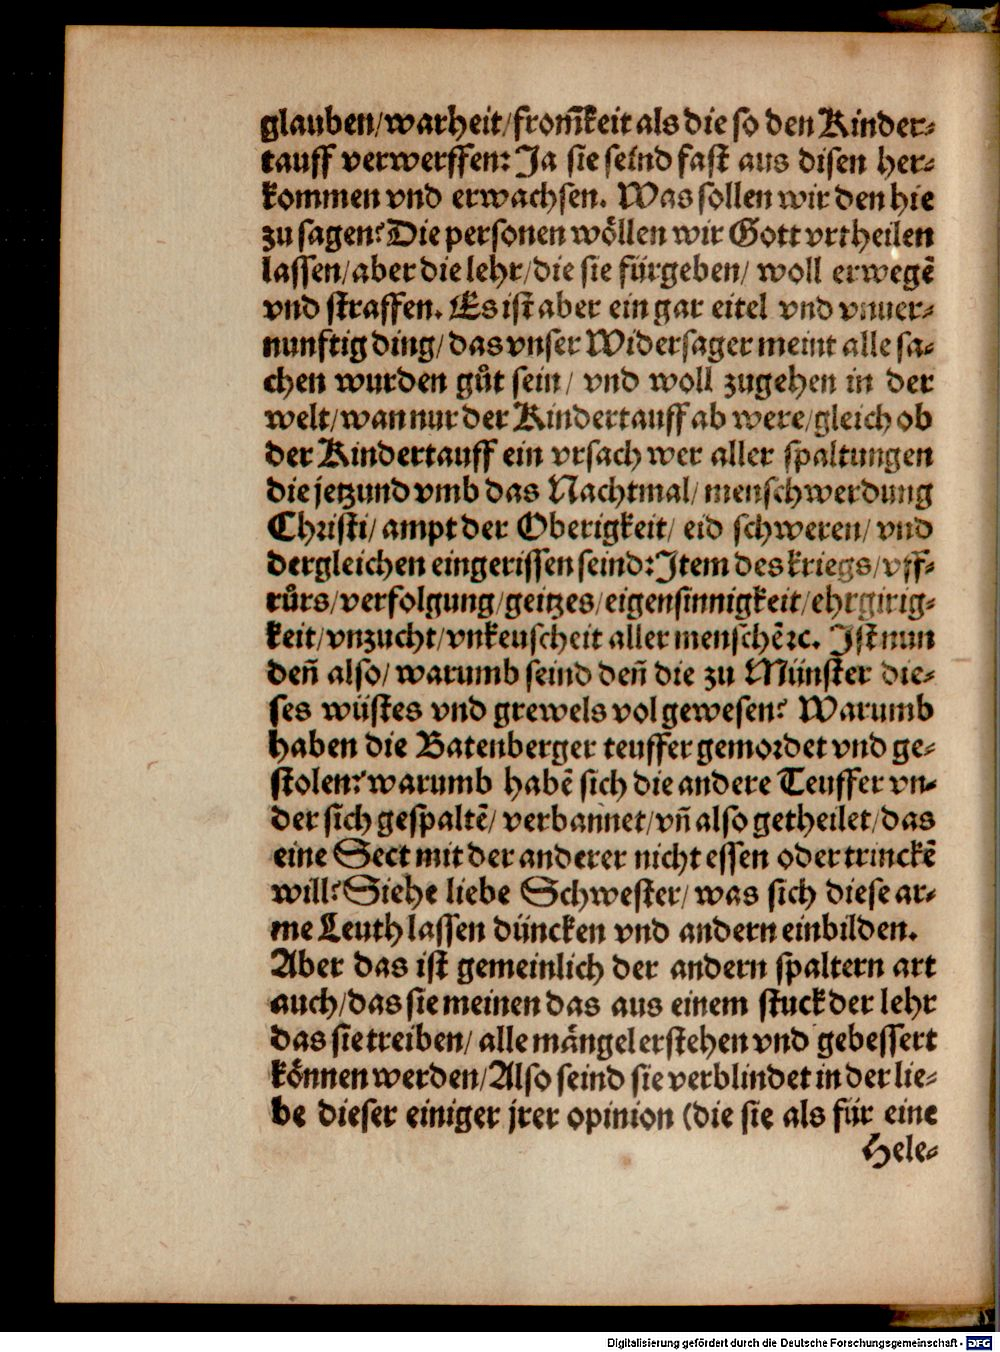 glauben/warheit/from̃keit als die so den Kinder⸗
tauff verwerffen: Ja sie seind fast aus disen her⸗
kommen vnd erwachsen. Was sollen wir den hie
zu sagen? Die personen wöllen wir Gott vrtheilen
lassen/aber die lehr/die sie fürgeben/ woll erwegē
vnd straffen. Es ist aber ein gar eitel vnd vnuer⸗
nunftig ding/das vnser Widersager meint alle sa⸗
chen wurden gůt sein/ vnd woll zugehen in der
welt/wan nur der Kindertauff ab were/gleich ob
der Kindertauff ein vrsach wer aller spaltungen
die jetzund vmb das Nachtmal/menschwerdung
Christi/ ampt der Oberigkeit/ eid schweren/ vnd
dergleichen eingerissen seind: Item des kriegs/vff⸗
růrs/verfolgung/geitzes/eigensinnigkeit/ehrgirig⸗
keit/vnzucht/vnkeuscheit aller menschē ꝛc. Ist nun
deñ also/ warumb seind deñ die zu Münster die⸗
ses wüstes vnd grewels vol gewesen? Warumb
haben die Batenberger teuffer gemordet vnd ge⸗
stolen? warumb habē sich die andere Teuffer vn⸗
der sich gespaltē/ verbannet/vñ also getheilet/das
eine Sect mit der anderer nicht essen oder trinckē
will? Siehe liebe Schwester/ was sich diese ar⸗
me Leuth lassen düncken vnd andern einbilden.
Aber das ist gemeinlich der andern spaltern art
auch/das sie meinen das aus einem stuck der lehr
das sie treiben/ alle mängel erstehen vnd gebessert
können werden/Also seind sie verblindet in der lie⸗
be dieser einiger jrer opinion (die sie als für eine
Hele⸗
Digitalisierung gefördert durch die Deutsche Forschungsgemeinschaft - DFG